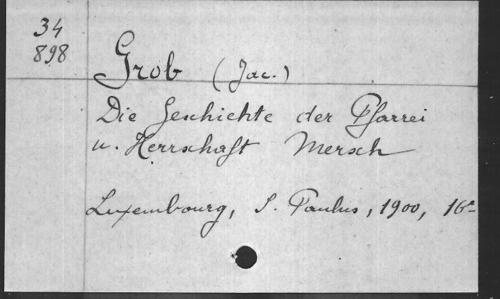 34
898
Grob (Jac.)
Die Geschichte der Pfarrei
u. Herrschaft Mersch
Luxembourg, S. Paulus, 1900, 16°